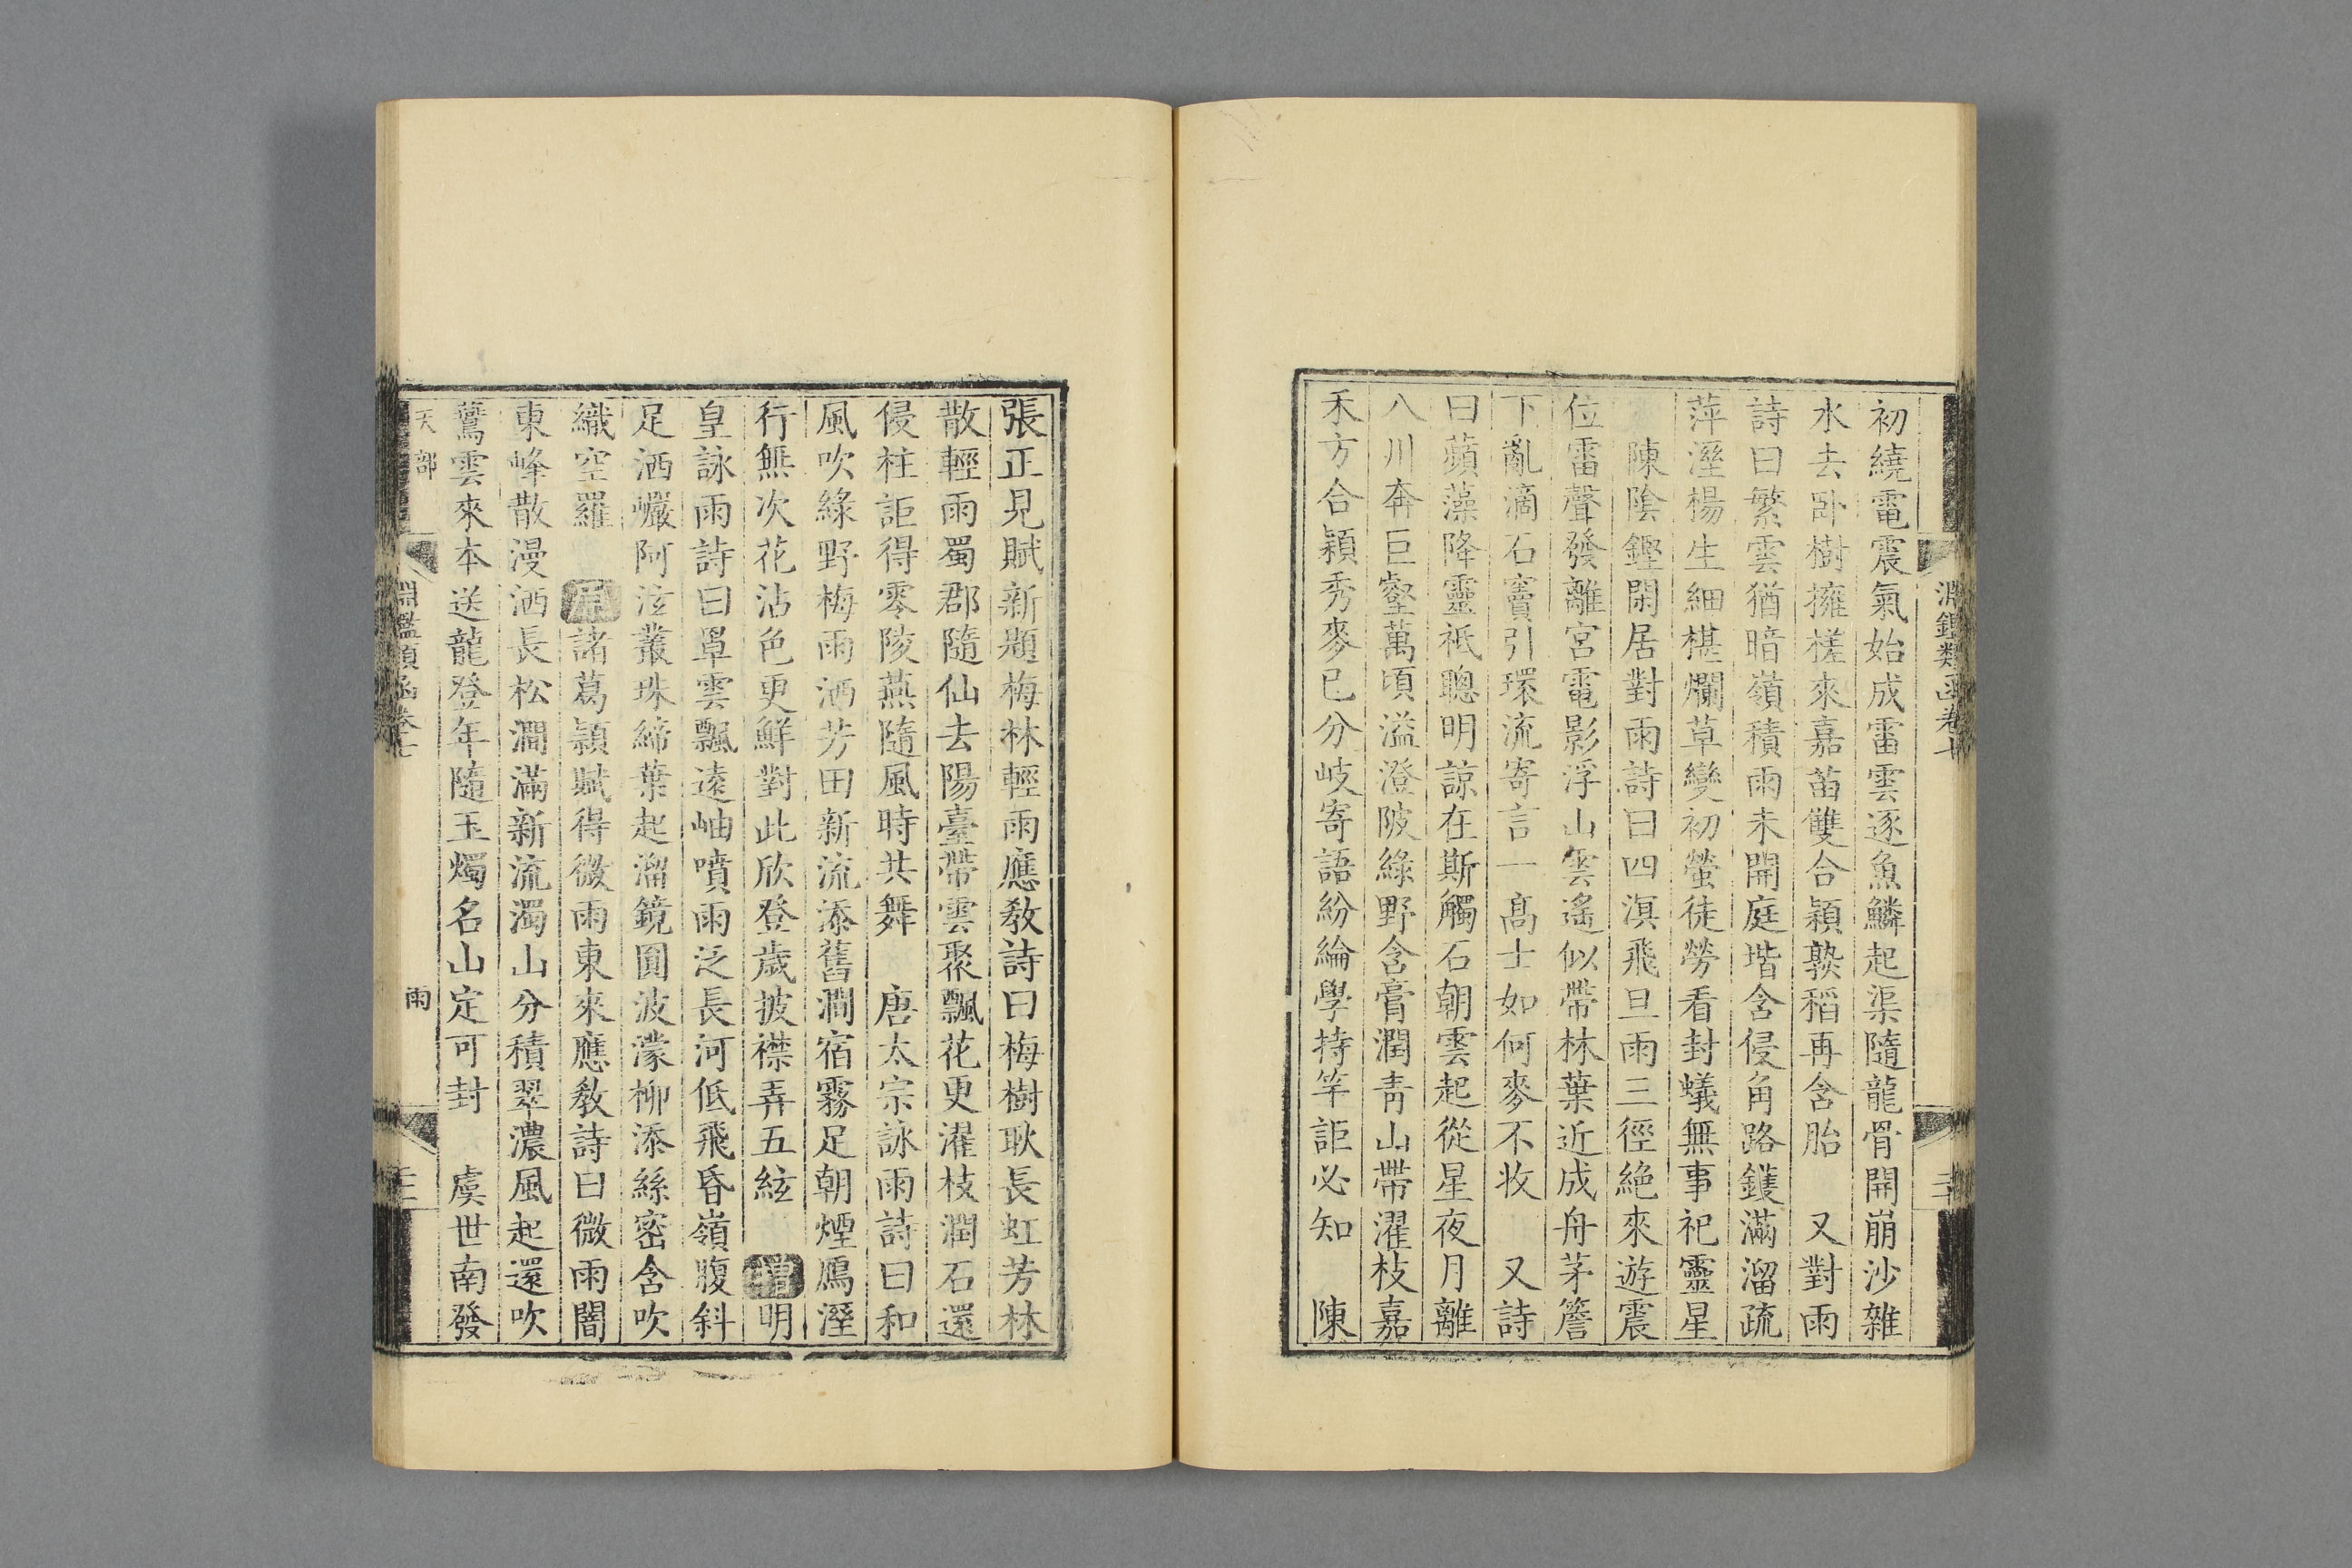 淵鑑類函卷七
初繞電震氣始成雷雲逐魚鱗起渠隨龍骨開崩沙雜
水去臥樹擁槎來嘉苗雙合穎熟稻再含胎 又對雨
詩曰繁雲猶暗嶺積雨未開庭堦含侵角路鑊滿溜疏
萍溼楊生細椹爛草變初螢徒勞看封蟻無事祀靈星
陳陰鏗閑居對雨詩曰四溟飛旦雨三徑絶來遊震
位雷聲發離宮電影浮山雲遙似帶林葉近成舟茅簷
下亂滴石竇引環流寄言一高士如何麥不收 又詩
曰蘋藻降靈祇聰明諒在斯觸石朝雲起從星夜月離
八川奔巨壑萬頃溢澄陂綠野含膏潤靑山帶濯枝嘉
禾方合穎秀麥已分岐寄語紛綸學持竿詎必知 陳
張正見賦新題梅林輕雨應敎詩曰梅樹耿長虹芳林
散輕雨蜀郡隨仙去陽臺帶雲聚飄花更濯枝潤石還
侵柱詎得零陵燕隨風時共舞 唐太宗詠雨詩曰和
風吹綠野梅雨洒芳田新流添舊澗宿霧足朝煙鴈溼
行無次花沾色更鮮對此欣登歲披襟弄五絃 增明
皇詠雨詩曰罩雲飄遠岫噴雨泛長河低飛昏嶺腹斜
足洒巖阿泫叢珠締葉起溜鏡圓波濛柳添絲密含吹
織空羅 原諸葛穎賦得微雨東來應敎詩曰微雨闇
東峰散漫洒長松澗滿新流濁山分積翠濃風起還吹
鷟雲來本送龍登年隨玉燭名山定可封 虞世南發
天部 淵鑑類函卷七 雨